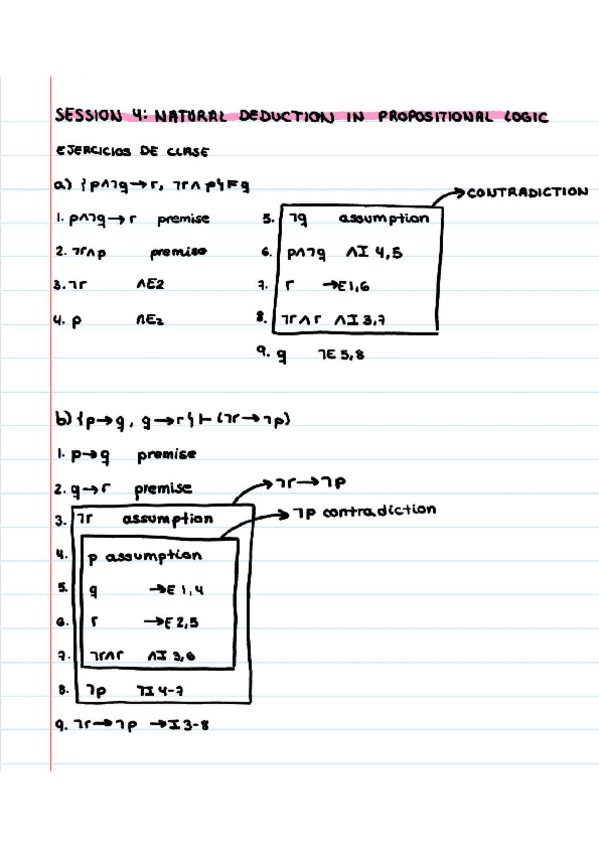 SESSION 4: NATURAL DEDUCTION IN PROPOSITIONAL LOGIC
EJERCICIOS DE CLASE
a) {p∧¬q→r, ¬r∧p}⊨q
→CONTRADICTION
1. p∧¬q→r premise
2. ¬r∧p premise
3. ¬r ∧E2
4. p ∧E2
5. ¬q assumption
6. p∧¬q ∧I 4,5
7. r →E1,6
8. ¬r∧r ∧I 3,7
9. q ¬E 5,8
b) {p→q, q→r} ⊢ (¬r→¬p)
1. p→q premise
2. q→r premise
→¬r→¬p
3. ¬r assumption
→¬p contradiction
4. p assumption
5. q →E 1,4
6. r →E 2,5
7. ¬r∧r ∧I 3,6
8. ¬p ¬I 4-7
9. ¬r→¬p →I 3-8